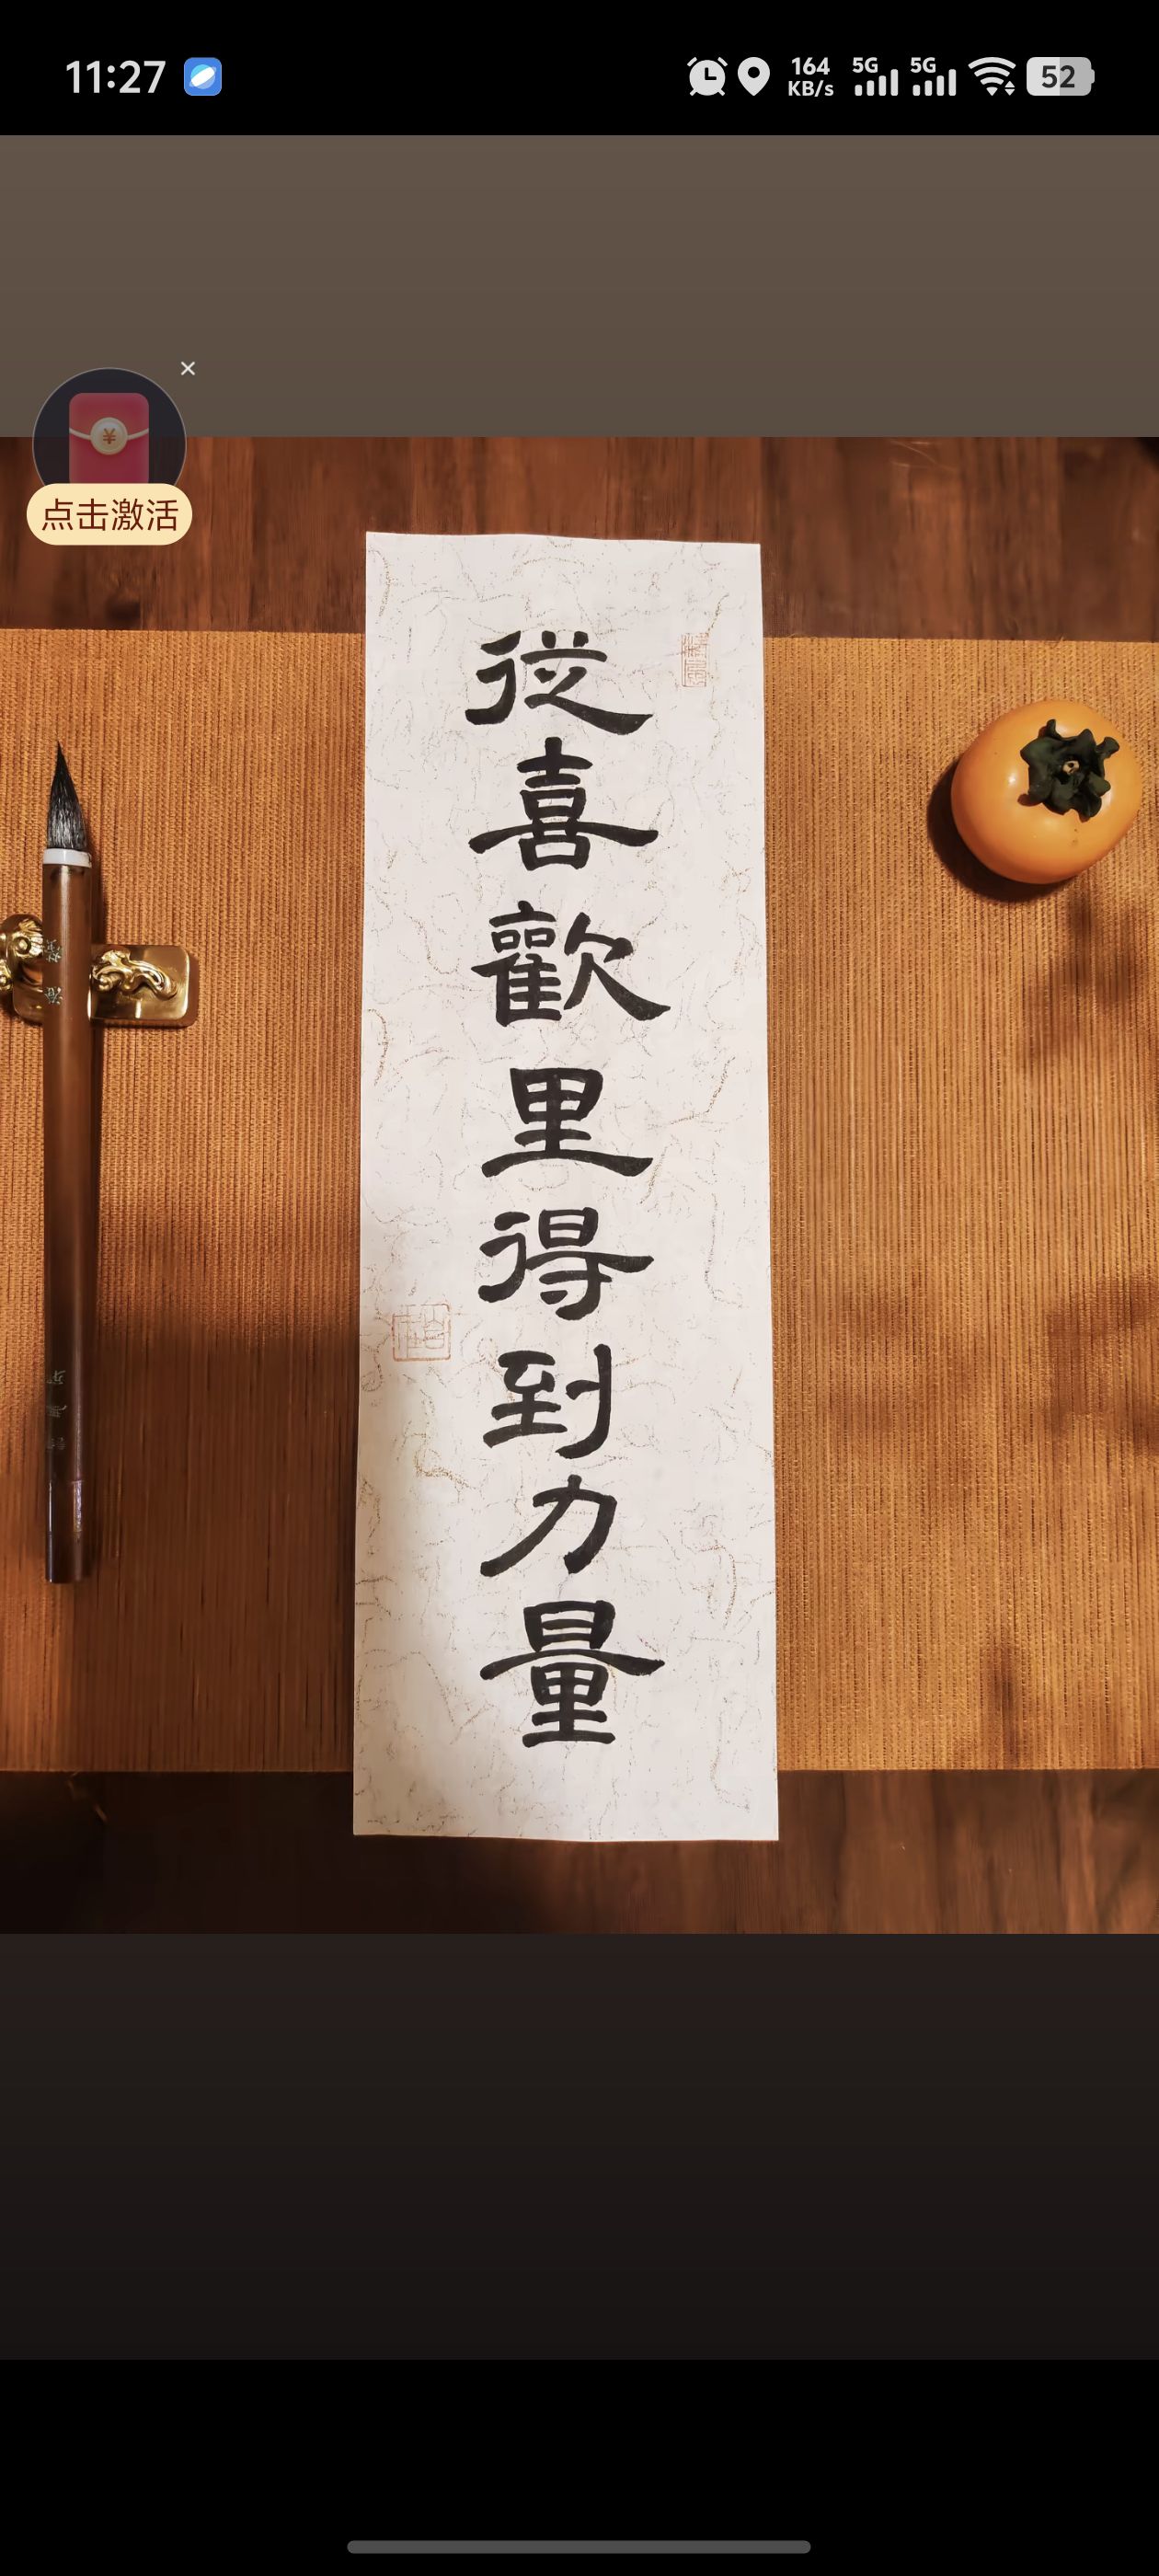 11:27
164
KB/s
5G
5G
52
点击激活
從喜歡里得到力量